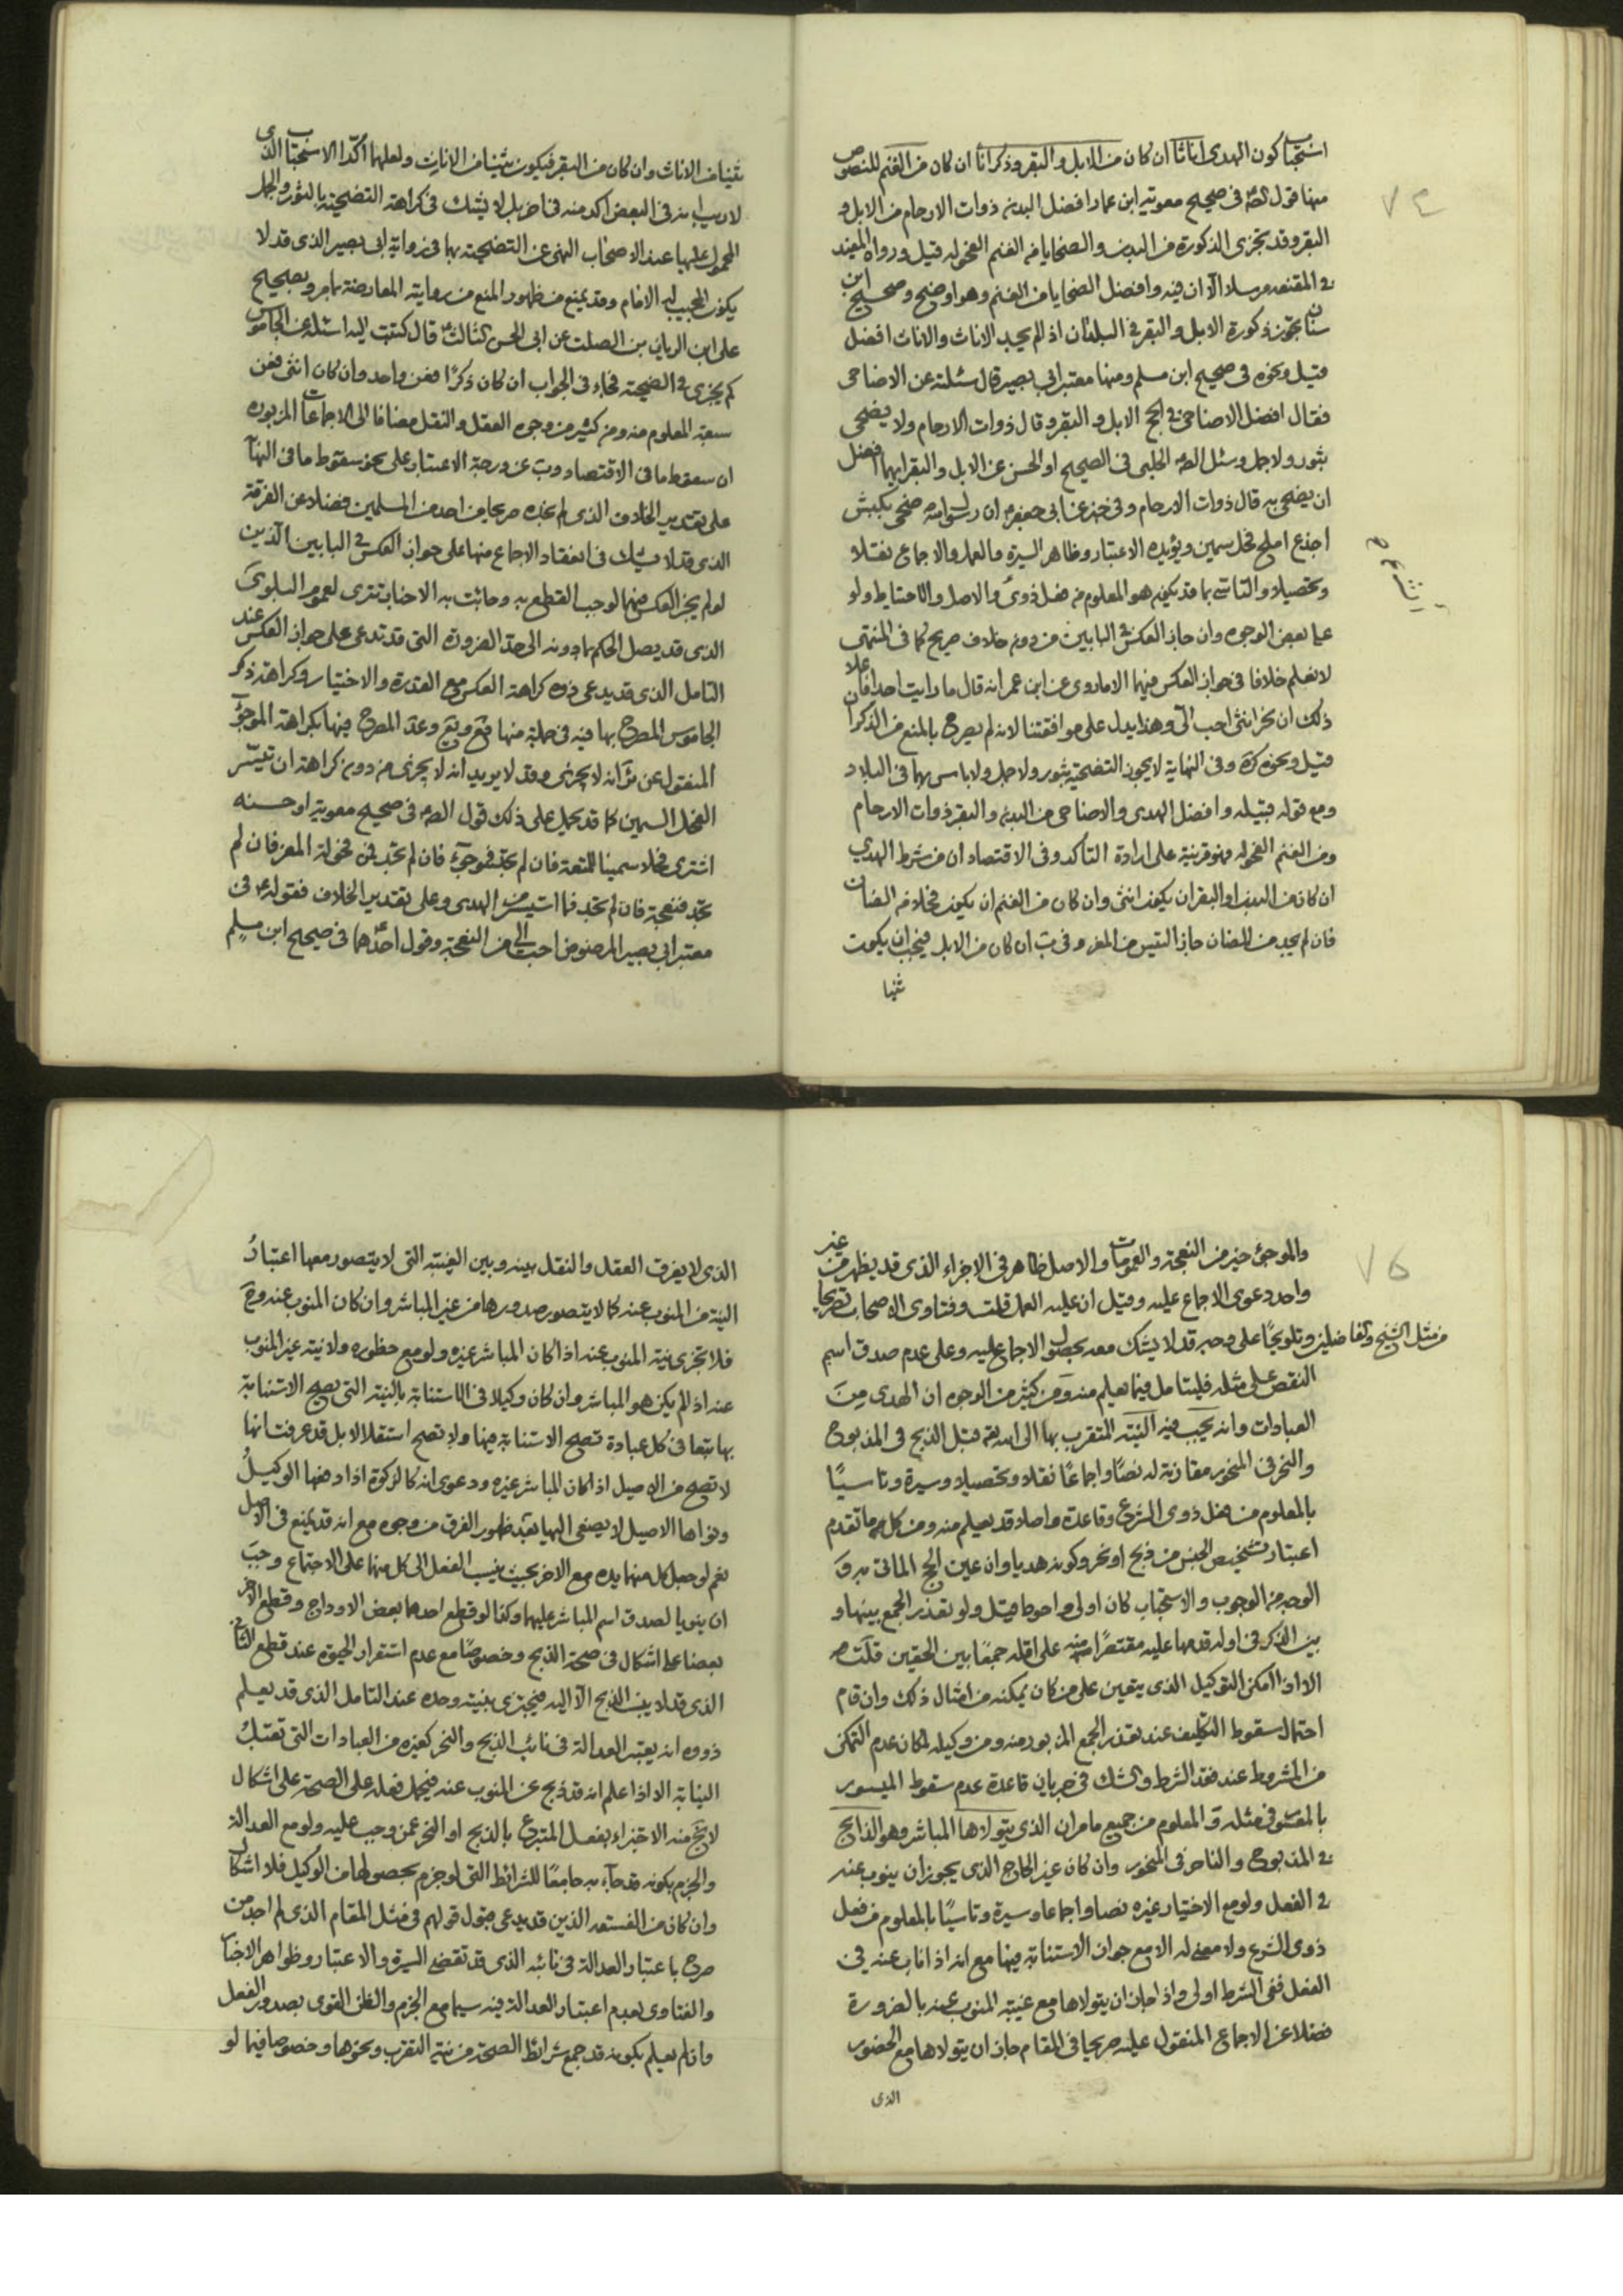 ٧٤
استحباب كون الهدى اناثا ان كان من الابل والبقر وذكرانا ان كان من الغنم للنصوص
منها قول الصه فى صحيح معوية ابن عمار افضل البدن ذوات الارحام من الابل و
البقر وقد تجزى الذكورة من البدن والضحايا من الغنم الفحوله قيل ورواه المفيد
فى المقنعه مرسلا الا ان فيه وافضل الضحايا من الغنم وهو اوضح وصحيح ابن
سنان يجوز ذكورة الابل والبقر فى البلدان اذا لم يجد الاناث والاناث افضل
قيل ونحوه فى صحيح ابن مسلم ومنها معتبر ابى بصير قال سئلته عن الاضاحى
فقال افضل الاضاحى فى الحج الابل والبقر وقال ذوات الارحام ولا يضحى
بثور ولا جمل وسئل الصه الحلبى فى الصحيح او الحسن عن الابل والبقر ايهما افضل
ان يضحى به قال ذوات الارحام وفى خبر عن ابى جعفر ان رسول الله ضحى بكبش
اجذع املح فحل سمين ويؤيده الاعتبار وظاهر السيرة والعمل والاجماع نقلا
وتحصيلا والتاسى بما قد يكون هو المعلوم من فعل ذوى والاصل والاحتياط ولو
على بعض الوجوه وان جاز العكس فى البابين من دون خلاف صريح كما فى المنتهى
لا نعلم خلافا فى جواز العكس فيهما الا ما روى عن ابن عمر انه قال ما رايت احدا فاعلا
ذلك ان نحر انثى احب الىّ وهذا يدل على موافقتنا لانه لم يصرح بالمنع من الذكران
قيل ونحوه كرة وفى النهاية لا يجوز التضحية بثور ولا جمل ولا باس بهما فى البلاد
ومع قوله قبيله وافضل الهدى والاضاحى من البدن والبقر ذوات الارحام
ومن الغنم الفحوله فهو قرينة على ارادة التاكد وفى الاقتصاد ان من شرط الهدي
ان كان من البدن او البقر ان يكون انثى وان كان من الغنم ان يكون فحلا من الضان
فان لم يجد من الضان جاز التيس من المعز وفى ب ان كان من الابل فيجب ان يكون
ثنيا
ثنيا من الاناث وان كان من البقر فيكون ثنيا من الاناث ولعلهما اكدا الاستحباب الذى
لا ريب انه فى البعض اكد منه فى اخر بل لا يشك فى كراهة التضحية بالثور والجمل
المحمول عليها عند الاصحاب النهى عن التضحية بهما فى رواية ابى بصير الذى قد لا
يكون المجيب له الامام وقد يمنع من ظهور المنع من روايته المعارضة بما مر وبصحيح
على ابن الريان من الصلت عن ابى الحسن الثالث قال كتبت اليه اسئله عن الجاموس
كم يجزى فى الضحية فجاء فى الجواب ان كان ذكرا فعن واحد وان كان انثى فعن
سبعة المعلوم منه ومن كثير من وجوه العقل والنقل مضافا الى الاجماعات المزبوره
ان سقوط ما فى الاقتصاد وب عن درجة الاعتبار على نحو سقوط ما فى النهاية
على تقدير الخلاف الذى لم نجده صريحا من احد من المسلمين فضلا عن الفرقة
الذى قد لا يشك فى انعقاد الاجماع منها على جواز العكس فى البابين الذين
لو لم يجز العكس فيهما لوجب القطع به وجائت به الاخبار تترى لعموم البلوى
الذى قد يصل الحكم بما دونه الى حد الضرورة التى قد تدعى على جواز العكس عند
التامل الذى قد يدعى ذوه كراهة العكس مع القدرة والاختيار وكراهة ذكر
الجاموس المصرح بها فيه فى جملة منها فع ويع وعد المصرح فيها بكراهة الموجوء
المنقول عن ئر انه لا يجزى وقد لا يريد انه لا يجزى من دون كراهة ان تيسّر
الفحل السمين كما قد يحمل على ذلك قول الصه فى صحيح معوية او حسنه
اشترى فحلا سمينا للمتعة فان لم تجد فموجوء فان لم تجد فمن فحولة المعز فان لم
تجد فنعجة فان لم تجد فما استيسر من الهدى وعلى تقدير الخلاف فقوله فى
معتبر ابى بصير المرضوض احب الى من النعجة وقول احدهما فى صحيح ابن مسلم
٧٥
والموجوء خير من النعجة والعمومات والاصل ظاهر فى الاجزاء الذى قد يظهر من غير
واحد دعوى الاجماع عليه وقيل ان عليه العمل قلت وفتاوى الاصحاب تصريحا
من مثل الشيخ والفاضلين وتلويحا على وجه قد لا يشك معه بحصول الاجماع عليه وعلى عدم صدق اسم
النقص على مثله فليتامل فيما يعلم منه ومن كثير من الوجوه ان الهدى من
العبادات وانه يجب فيه النية المتقرب بها الى الله تع قبل الذبح فى المذبوح
والنحر فى المنحور مقارنة له نصا واجماعا نقلا وتحصيلا وسيرة وتاسيا
بالمعلوم من فعل ذوى الشرع وقاعدة واصلا قد يعلم منه ومن كل ما تقدم
اعتبار تشخيص الجنس من ذبح او نحر وكونه هديا وان عين الحج الماتى به وفى
الوجه من الوجوب والاستحباب كان اولى واحوط قيل ولو تعذر الجمع بينها و
بين الذكر فى اوله قدمها عليه مقتصرا منه على اقله جمعا بين الحقين قلت
الا اذا امكن التوكيل الذى يتعين على من كان يمكنه من امثال ذلك وان قام
احتمال سقوط التكليف عند تعذر الجمع المزبور منه ومن وكيله لمكان عدم التمكن
من المشروط عند فقد الشرط والشك فى جريان قاعدة عدم سقوط الميسور
بالمعسور فى مثله والمعلوم من جميع ما مر ان الذى يتولاها المباشر وهو الذابح
فى المذبوح والناحر فى المنحور وان كان غير الحاج الذى يجوز ان ينوب عنه
فى الفعل ولو مع الاختيار غيره نصا واجماعا وسيرة وتاسيا بالمعلوم من فعل
ذوى الشرع ولا معنى له الا مع جواز الاستنابة فيها مع انه اذا ناب عنه فى
الفعل ففى الشرط اولى واذا جاز ان يتولاها مع غيبة المنوب عنه بالضرورة
فضلا عن الاجماع المنقول عليه صريحا فى المقام جاز ان يتولاها مع الحضور
الذى
الذى لا يفرق العقل والنقل بينه وبين الغيبة التى لا يتصور معها اعتبار
النية من المنوب عنه كما لا يتصور صدورها من غير المباشر وان كان المنوب عنه وح
فلا تجزى نية المنوب عنه اذا كان المباشر غيره ولو مع حظوره ولا نية غير المنوب
عنه اذا لم يكن هو المباشر وان كان وكيلا فى الاستنابة بالنية التى يصح الاستنابة
بها تبعا فى كل عبادة تصح الاستنابة فيها ولا تصح استقلالا بل قد عرفت انها
لا تصح من الاصيل اذا كان المباشر غيره ودعوى انه كالزكوة اذا دفعها الوكيل
ونواها الاصيل لا يصغى اليها بعد ظهور الفرق من وجوه مع انه قد يمنع فى الاصل
نعم لو جعل كل منهما يده مع الاخر بحيث ينسب الفعل الى كل منهما على الاجتماع وجب
ان ينويا لصدق اسم المباشر عليهما وكذا لو قطع احدهما بعض الاوداج وقطع الاخر
بعضا على اشكال فى صحة الذبح وخصوصا مع عدم استقرار الحيوه عند قطع الثانى
الذى قد لا ينسب الذبح الا اليه فيجتزى بنيته وحده عند التامل الذى قد يعلم
ذووه انه يعتبر العدالة فى نائب الذبح والنحر كغيره من العبادات التى تقبل
النيابة الا اذا علم انه قد ذبح عن المنوب عنه فيحمل فعله على الصحة على اشكال
لا يخ منه الاجتزاء بفعل المتبرع بالذبح او النحر عمن وجب عليه ولو مع العدالة
والجزم بكونه قد جاء به جامعا للشرائط التى لو جزم بحصولها من الوكيل فلا اشكال
وان كان من الفسقه الذين قد يدعى قبول قولهم فى مثل المقام الذى لم اجد من
صرح باعتبار العدالة فى نائبه الذى قد تقضى السيرة والاعتبار وظواهر الاخبار
والفتاوى بعدم اعتبار العدالة فيه سيما مع الجزم والظن القوى بصدور الفعل
وان لم يعلم بكونه قد جمع شرائط الصحة من نية التقرب ونحوها وخصوصا فيما لو